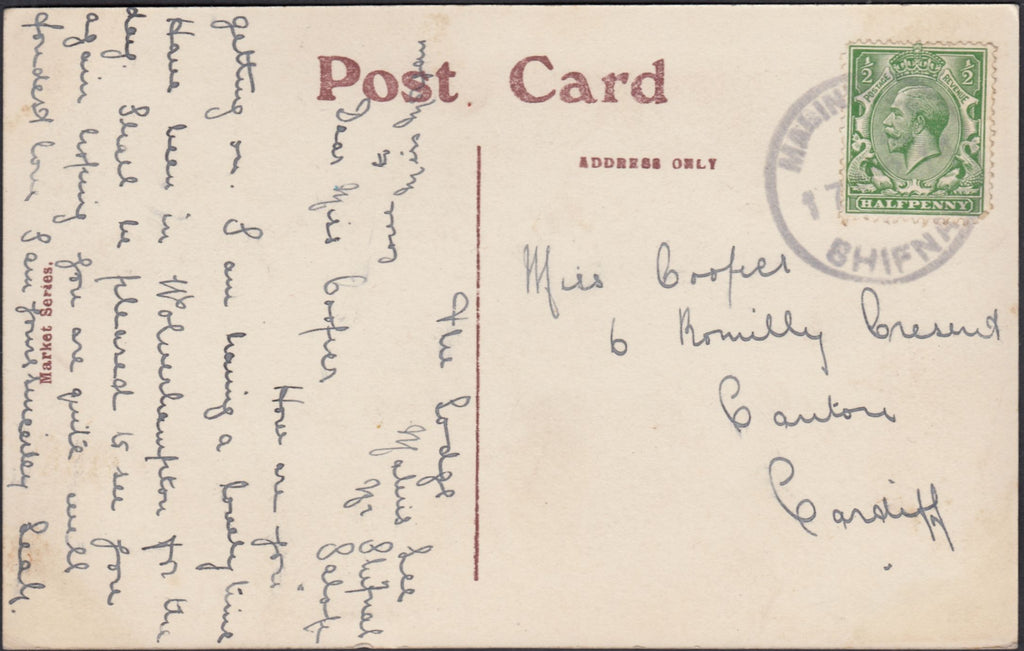 Post Card
ADDRESS ONLY
½ ½
POSTAGE REVENUE
HALFPENNY
17
SHIFN
Miss Cooper
6 Romilly Cresent
Canton
Cardiff
Market Series.
The Lodge
Malins Lee
Nr Shifnal
Salop
Dear Miss Cooper
How are you
getting on. I am having a lovely time
Have been in Wolverhampton for the
day. Shall be pleased to see you
again hoping you are quite well
fondest love I am yours sincerely